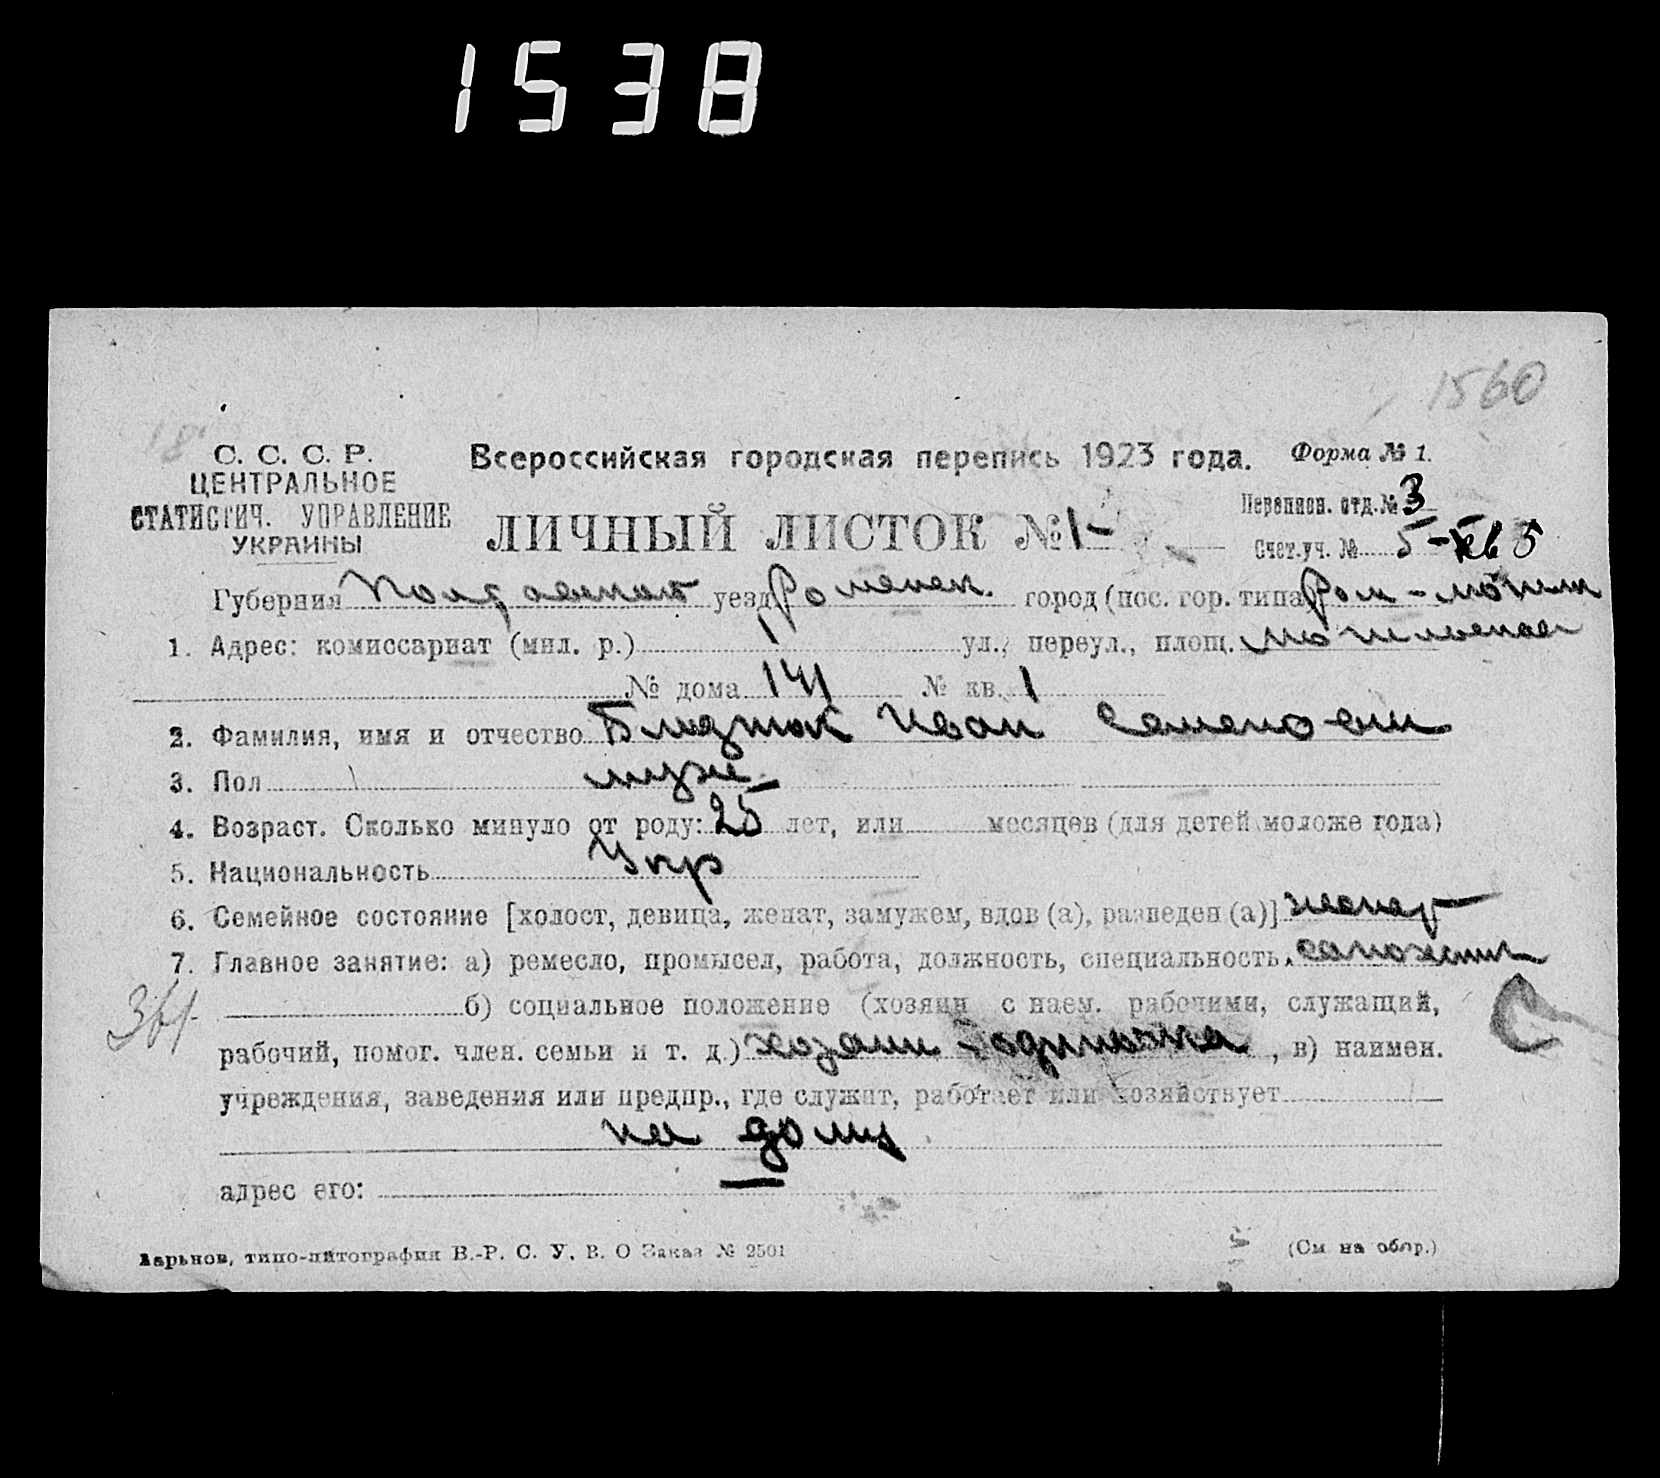 1538
1560
С. С. С. Р.
ЦЕНТРАЛЬНОЕ
СТАТИСТИЧ. УПРАВЛЕНИЕ
УКРАИНЫ
Всероссийская городская перепись 1923 года.
Форма № 1.
ЛИЧНЫЙ ЛИСТОК № 1-
Переписн. отд. № 3
Счет.уч. № 5 - кв 5
Губерния уезд Роменск. город (пос. гор. типа)
1. Адрес: комиссариат (мил. р.) 1 ул., переул., площ.
№ дома 141 № кв. 1
2. Фамилия, имя и отчество Иван Семенович
3. Пол муж
4. Возраст. Сколько минуло от роду: 25 лет, или месяцев (для детей моложе года)
5. Национальность Укр
6. Семейное состояние [холост, девица, женат, замужем, вдов (а), разведен (а)] женат
7. Главное занятие: а) ремесло, промысел, работа, должность, специальность, сапожник
б) социальное положение (хозяин с наем. рабочими, служащий,
рабочий, помог. член. семьи и т. д.) хозяин одиночка, в) наимен.
учреждения, заведения или предпр., где служит, работает или хозяйствует
на дому
адрес его:
Харьков, типо-литография В.-Р. С. У. В. О Заказ № 2501
(См на обор.)